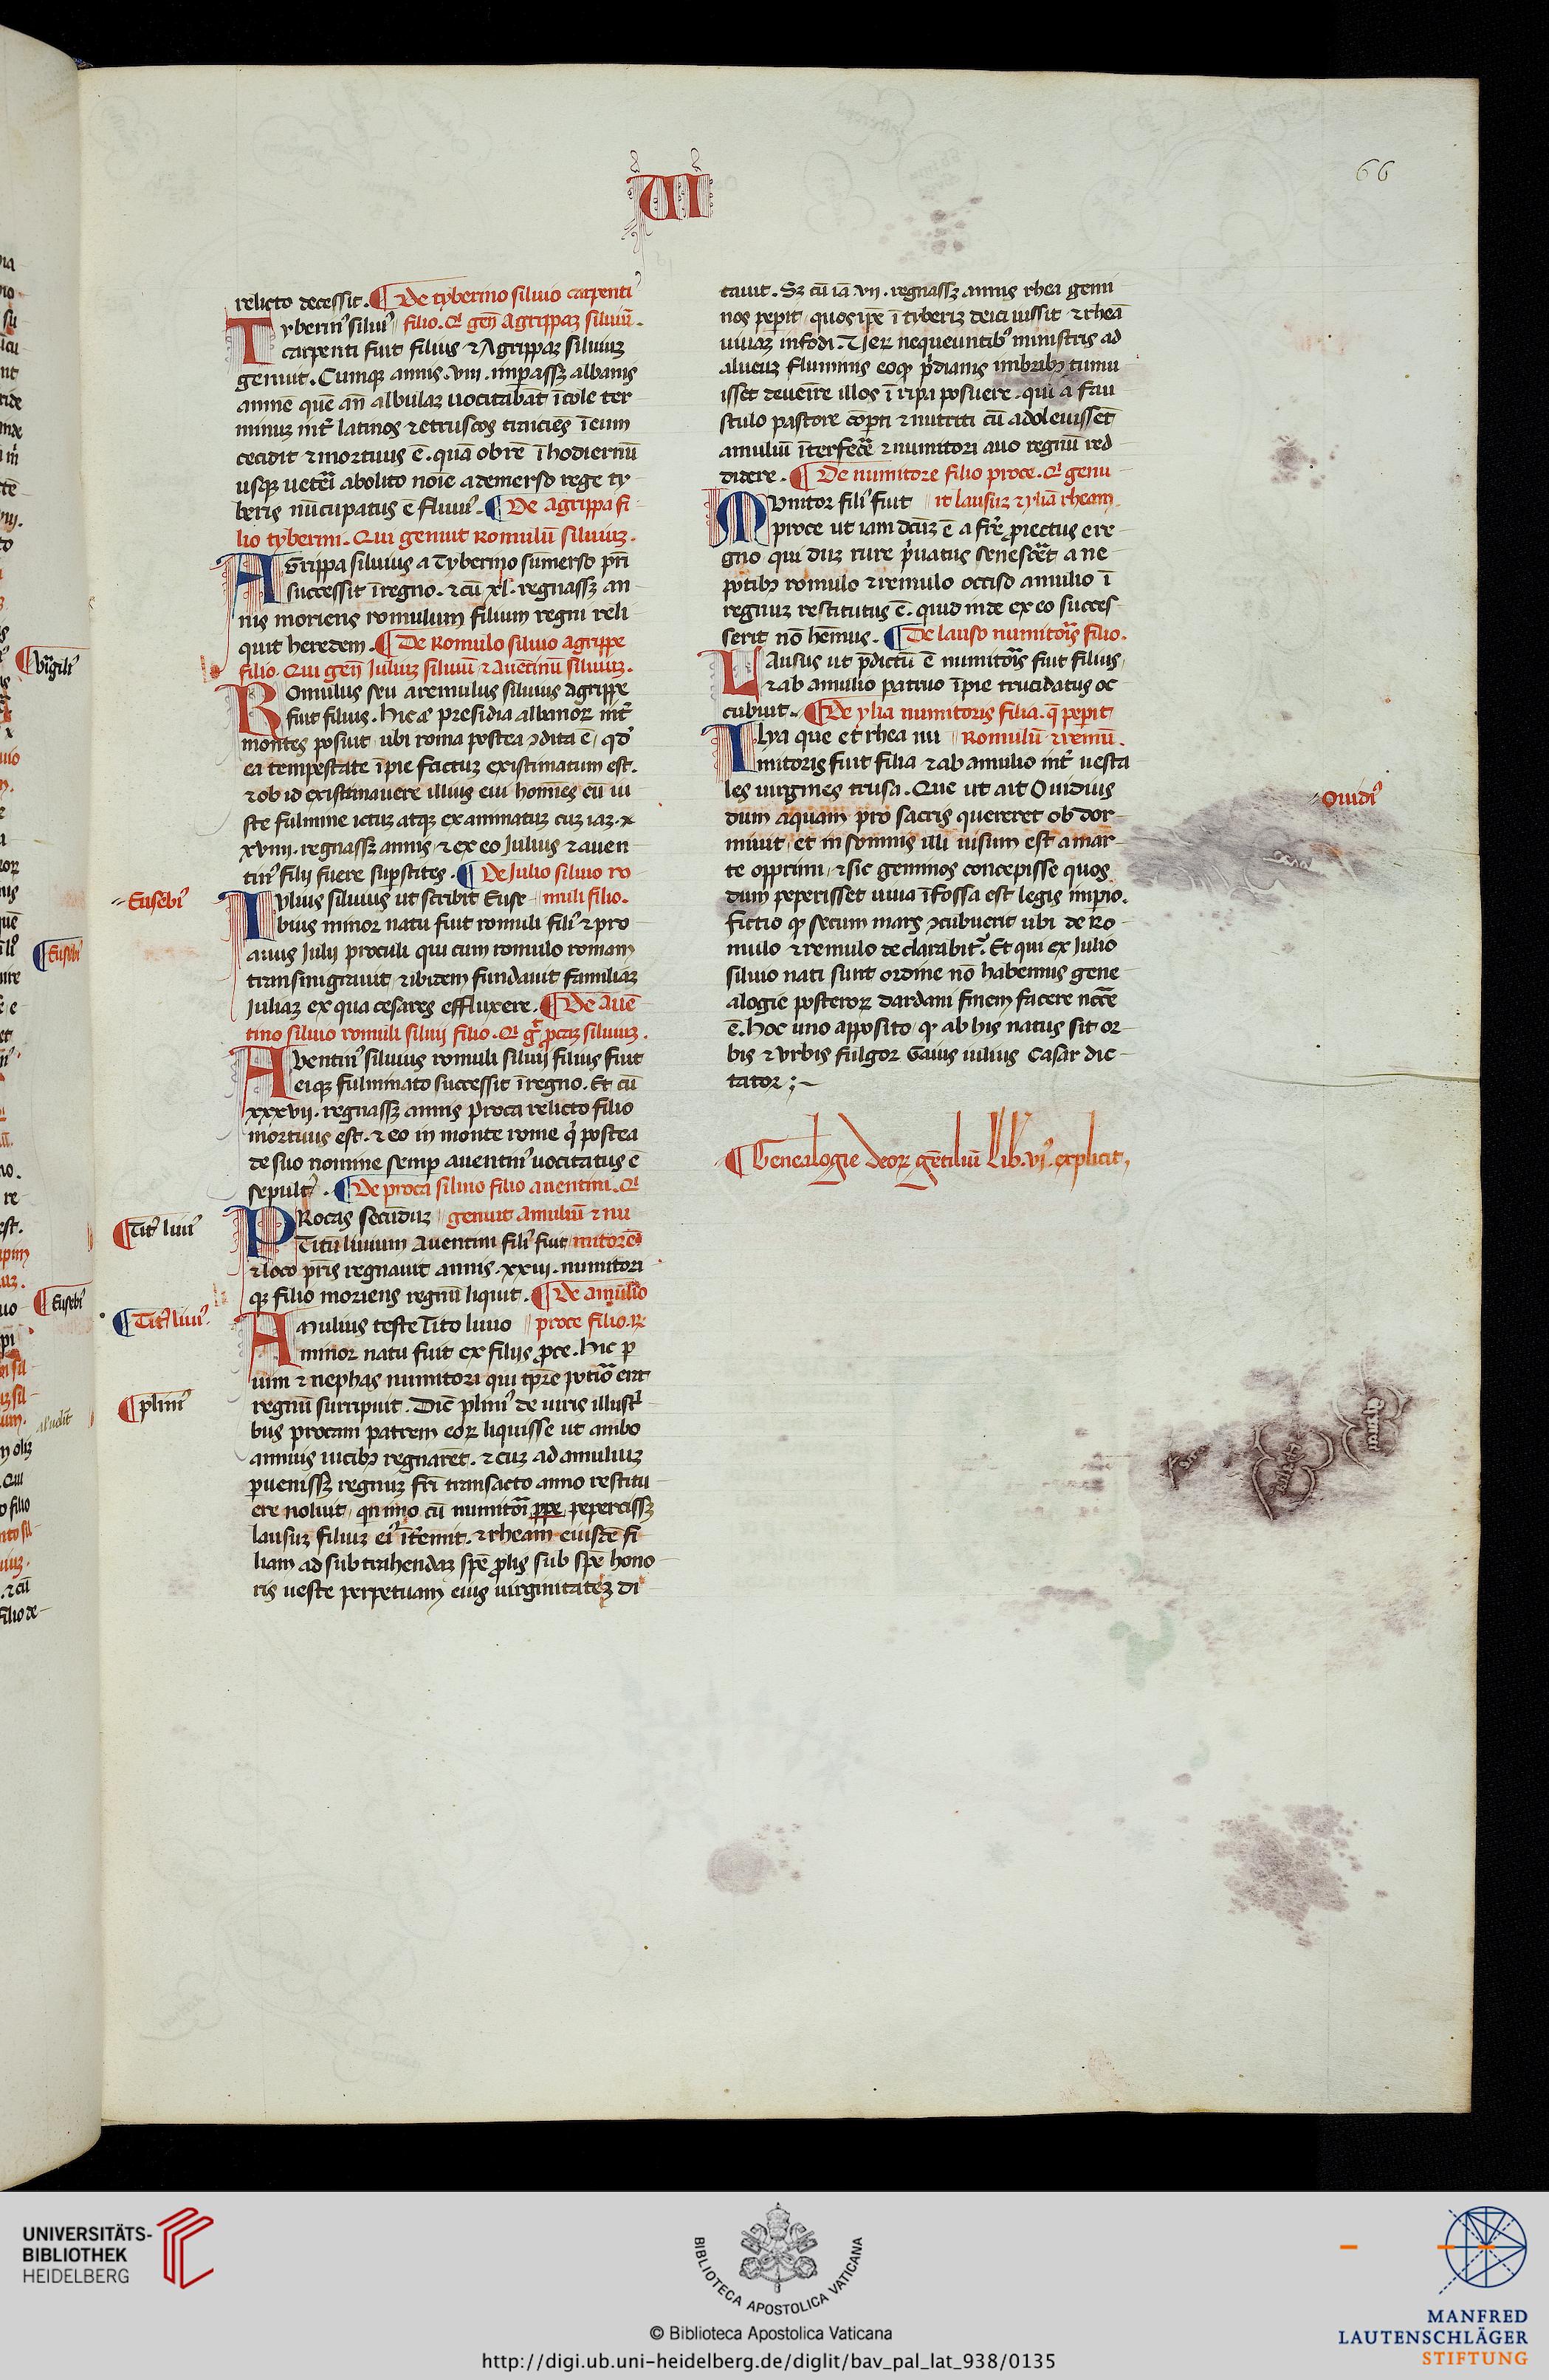 VI
66
relicto decessit. De tyberino siluio carpenti
Tyberin᷒ siluí᷒ filio. Q̇ geñ Agrippaꝫ siluiū.
carpenti fuit filius ⁊ Agrippaꝫ siluiuꝫ
genuit. Cumqꝫ annis .viii. imꝑassꝫ albanis
amnē quē añ albulaꝫ uocitabāt īcole ter
minuꝫ int᷑ latinos ⁊ etruscos traiciēs ī eum
cecidit ⁊ mortuus ē. quā ob rē ī hodiernū
usqꝫ uetēi abolito noīe a demerso rege ty
beris nūcupatus ē fluui᷒. De agrippa fi
lio tyberini. Qui genuit Romulū siluiuꝫ.
AGrippa siluius a Tyberino sūmerso pr̄i
successit ī regno. ⁊ cū xl. regnassꝫ an
nis moriens romulum filium regni reli
quit heredem. De Romulo siluio agrippe
filio. Qui geñ Iuliuꝫ siluiū ⁊ auētinū siluiuꝫ.
ROmulus seu aremulus siluius agrippe
fuit filius. Hic presidia albanoꝝ int᷑
montes posuit ubi roma postea ꝯdita ē, qd̓
ea tempestate īpie factuꝫ existimatum est.
⁊ ob id existimauere illius eui homīes eū iu
ste fulmine ictuꝫ atqꝫ exanimatuꝫ cuꝫ iaꝫ .x
xviiii. regnassꝫ annis ⁊ ex eo Iulius ⁊ auen
tin᷒ filij fuere suꝑstites. De Iulio siluio ro
IVlius siluius ut scribit Euse muli filio.
bius minor natu fuit romuli fili᷒ ⁊ pro
auus Iulij proculi qui cum romulo romam
transmigrauit ⁊ ibidem fundauit familiaꝫ
Iuliaꝫ ex qua cesares effluxere. De auē
tino siluio romuli siluij filio. Q̇ g᷑ ꝓcaꝫ siluiuꝫ.
AVentin᷒ siluius romuli siluij filius fuit
eiqꝫ fulminato successit ī regno. Et cū
xxxvij. regnassꝫ annis Proca relicto filio
mortuus est. ⁊ eo in monte rome q̇ postea
de suo nomine semꝑ auentin᷒ uocitatus ē
sepult᷒. De proca siluio filio auentini. Q̇
PRocas secūduꝫ genuit amuliū ⁊ nu
Titū liuium Auentini fili᷒ fuit mitorē
⁊ loco pr̄is regnauit annis .xxiii. numitori
qꝫ filio moriens regnū liquit. De amulio
AMulius teste Tito liuio proce filio.
minor natu fuit ex filijs ꝓce. Hic ꝑ
uim ⁊ nephas numitori qui tꝑe potiō erat
regnū surripuit. Dic̄ plini᷒ de uiris illustri
bus procam patrem eoꝝ liquisse ut ambo
annuis uicibꝫ regnarēt. ⁊ cuꝫ ad amuliuꝫ
ꝑuenissꝫ regnuꝫ fr̄i transacto anno restitu
ere noluit, qn imo cū numitōi ꝓpe pepercissꝫ
lausuꝫ filiuꝫ ei᷒ īt᷑emit. ⁊ rheam eiusdē fi
liam ad subtrahendaꝫ spē ꝓlis sub spē hono
ris ueste perpetuam eius uirginitateꝫ di
cauit. Sꝫ cū iā vii. regnassꝫ annis rhea gemi
nos peperit, quos ip̄e ī tyberiꝫ deici iussit ⁊ rheā
uiuaꝫ infodi. Veꝝ nequeuntib᷒ ministris ad
alueuꝫ fluminis eo qꝙ p̄dianis imbribꝫ tumu
isset deuenire illos ī ripa posuere. qui a fau
stulo pastore cōp̄ti ⁊ nutriti cū adoleuissēt
amuliū īterfecēr ⁊ numitori auo regnū red
didere. De numitore filio proce. Q̇ genu
NVmitor fili᷒ fuit it lausuꝫ ⁊ yliā rheam.
proce ut iam dc̄uꝫ ē a fr̄e ꝓiectus e re
gno qui duꝫ rure p̄uatus senescēt a ne
potibꝫ romulo ⁊ remulo occiso amulio ī
regnuꝫ restitutus ē. quid inde ex eo succes
serit nō hēmus. De lauso numitoris filio.
LAusus ut p̄dictū ē numitoris fuit filius,
⁊ ab amulio patruo īpie trucidatus oc
cubuit. De ylia numitoris filia. q̄ peperit
ILya que et rhea nu Romulū ⁊ remū.
mitoris fuit filia ⁊ ab amulio int᷑ uesta
les uirgines trusa. Que ut ait Ouidius
dum aquam pro sacris quereret ob dor
miuit, et in somnis illi uisum est a mar
te opprimi, ⁊ sic geminos concepisse quos
dum peperisset uiua ī fossa est legis imꝑio.
Fictio ꝙ secum mars ꝯcubuerit ubi de Ro
mulo ⁊ remulo declarabit᷑. Et qui ex Iulio
siluio nati sunt ordine nō habemus gene
alogie posteroꝝ dardani finem facere nēcē
ē. Hoc uno apposito, ꝙ ab his natus sit or
bis ⁊ vrbis fulgor Gaius iulius Cesar dic
tator ;~
Genealogie deoꝝ gētiliū Lib. vi. explicit,
Eusebi᷒
Tit᷒ liui᷒
Tit᷒ liui᷒.
plini᷒
Ouidi᷒
Virgili᷒
Eusebi᷒
Eusebi᷒
UNIVERSITÄTS-
BIBLIOTHEK
HEIDELBERG
BIBLIOTECA APOSTOLICA VATICANA
© Biblioteca Apostolica Vaticana
http://digi.ub.uni-heidelberg.de/diglit/bav_pal_lat_938/0135
MANFRED
LAUTENSCHLÄGER
STIFTUNG